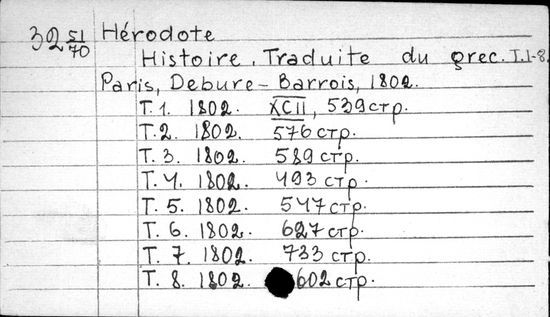 32 51/70 Hérodote
Histoire. Traduite du grec. T.1-8.
Paris, Debure-Barrois, 1802.
T. 1. 1802. XCII, 539 стр.
T. 2. 1802. 576 стр.
T. 3. 1802. 589 стр.
T. 4. 1802. 493 стр.
T. 5. 1802. 547 стр.
T. 6. 1802. 627 стр.
T. 7. 1802. 733 стр.
T. 8. 1802. 602 стр.